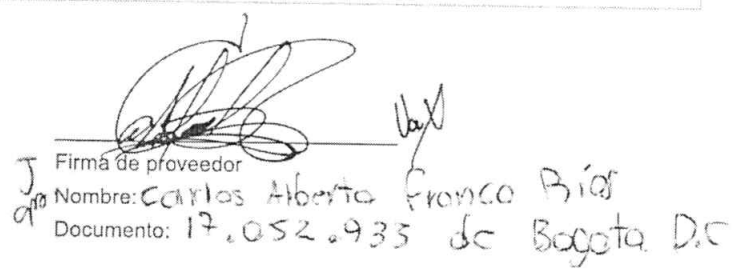 Firma de proveedor
Nombre: Carlos Alberto Franco Ríos
Documento: 17.052.933 de Bogota D.C